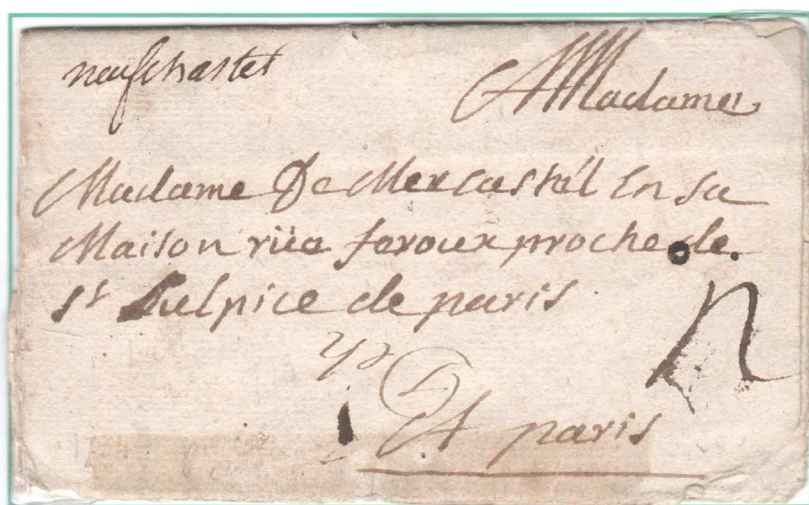 neufchastel
A Madame
Madame De Mercastel en sa
Maison rüe feroux proche de
st Sulpice de paris
A paris